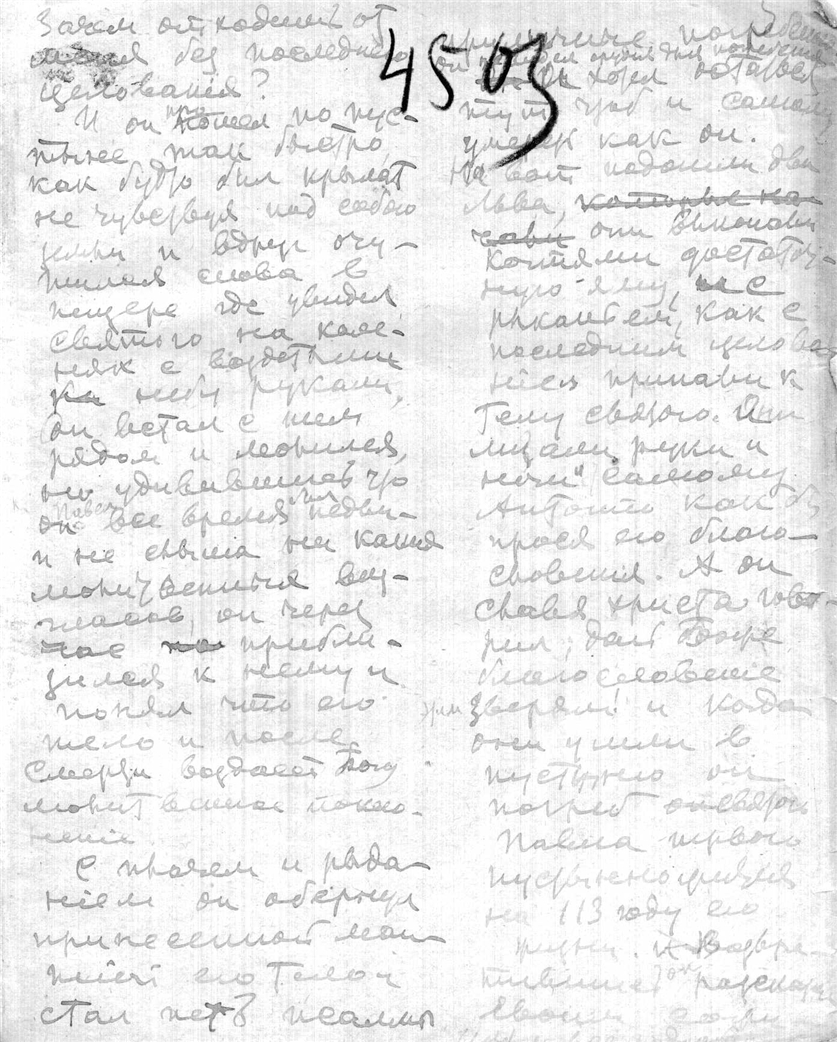 Зачем отходишь от
меня без последняго
целования?
И он пошел по пус-
тыне так быстро,
как будто был крылат
не чувствуя под собою
земли и вдруг очу-
тился снова в
пещере где увидел
святого на коле-
нях с воздетыми
к небу руками,
он встал с ним
рядом и молился,
но удивившись что
он Павел все время недви-
и не слыша ни каких
молитвенных воз-
гласов, он через
час прибли-
зился к нему и
понял что его
тело и после
смерти воздает Богу
молитвенное покло-
нение
С плачем и рыда-
нием он обернул
принесенной ман-
тией его тело и
стал петь псалмы
4503
приличные погребению
он хотел остаться
тут чтоб и самому
умереть как он.
Но вот подошли два
льва, которые на-
чали они выкопали
когтями достаточ-
ную яму, и с
рыканием, как с
последним целова-
нием припали к
телу святого. Они
лизали руки и
ноги самому
Антонию как бы
прося его благо-
словения. А он
славя Христа гово-
рил; дай Боже
благословение
этим зверям! и когда
они ушли в
пустыню он
погреб святого
Павла первого
пустынножителя
на 113 году его
жизни. Возвра-
тившись он
своим